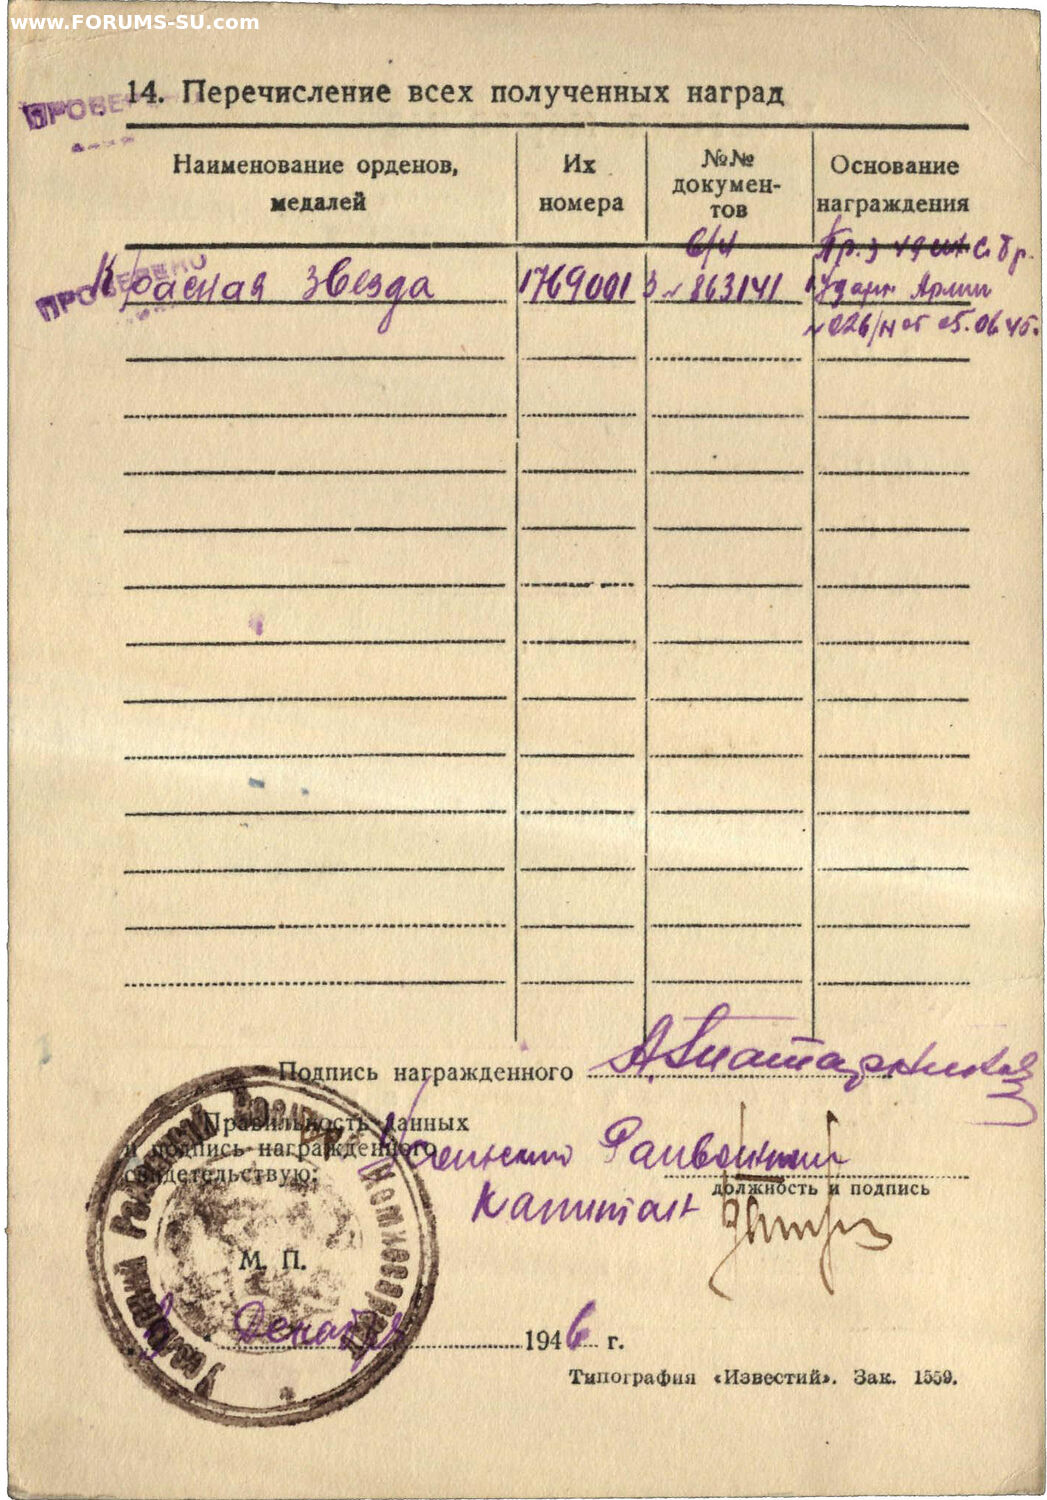 www.FORUMS-SU.com
14. Перечисление всех полученных наград
ПРОВЕ
Наименование орденов, медалей
Их номера
№№ докумен-тов
Основание награждения
б/н
Пр. з 79 С. Бр.
ПРОВЕРЕНО
Красная звезда
1769001
З № 863141
Ударн Армии
№ 026/н от 05.06.45.
Подпись награжденного
Правильность данных
и подпись награжденного
свидетельствую:
Райвоенком
должность и подпись
Капитан
М. П.
Районный Военный Комиссариат
Декабря 1946 г.
Типография «Известий». Зак. 1559.